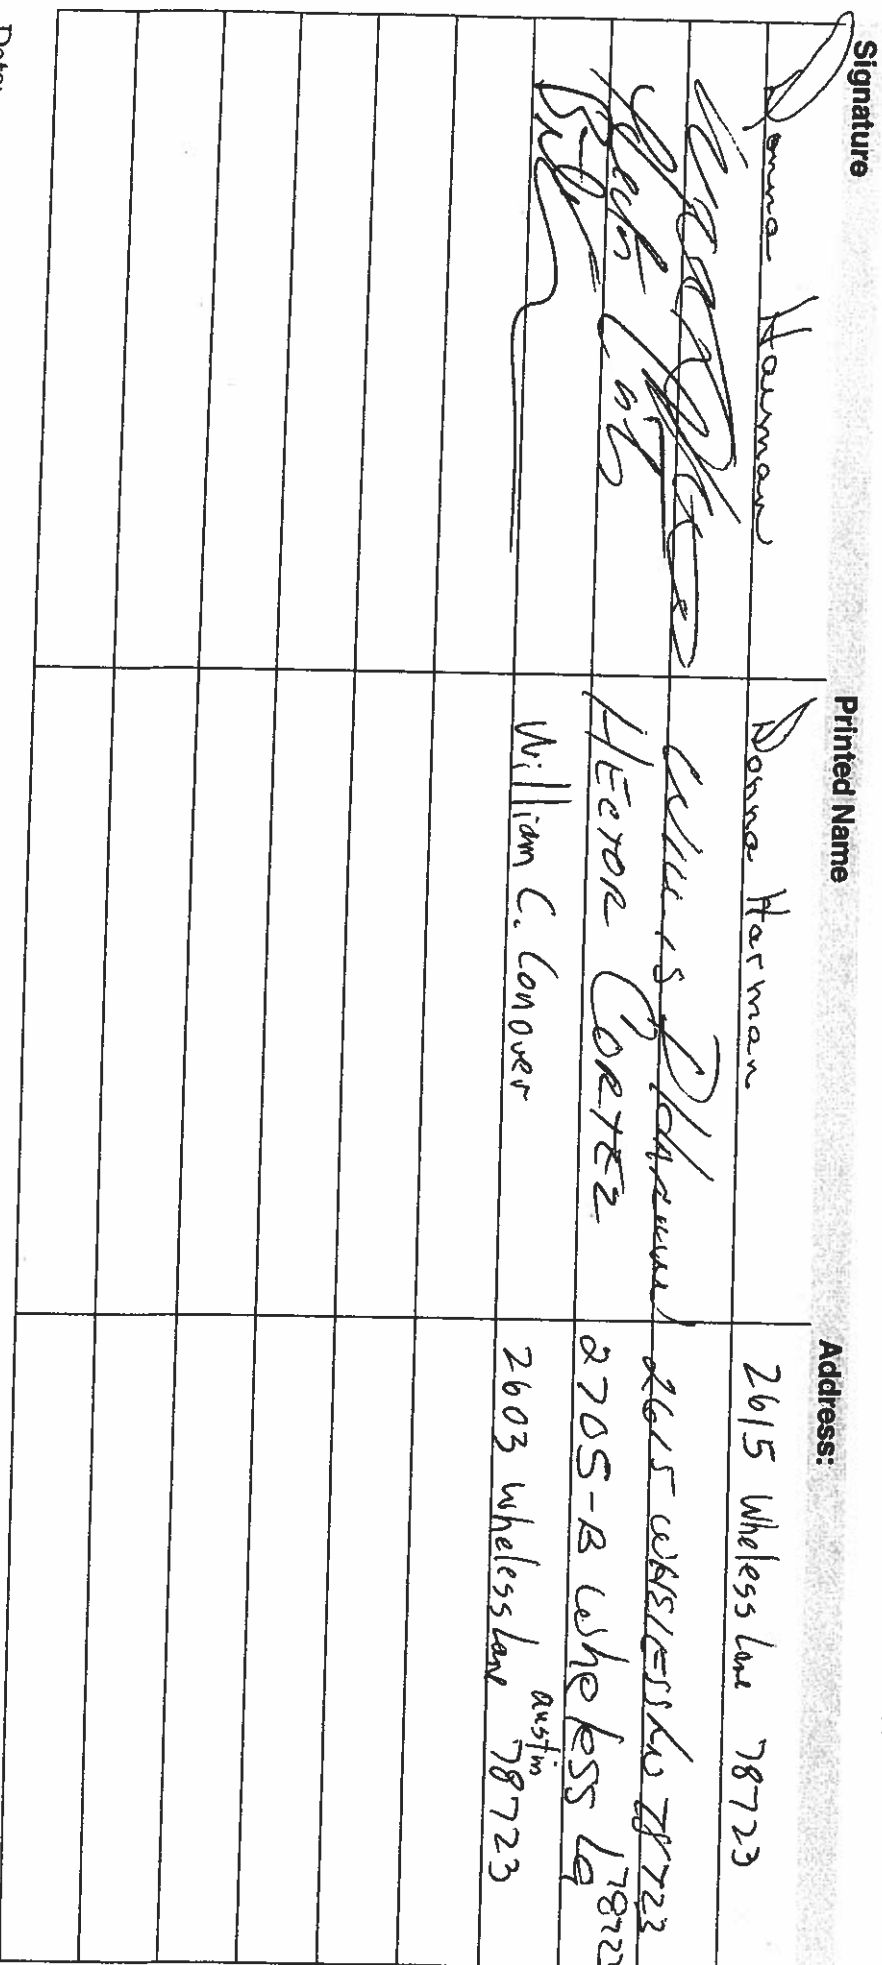 Signature Printed Name Address:
Donna Harman Donna Harman 2615 Wheless Lane 78723
2615 WHSLESS LN 78723
HECTOR CORTEZ 2705-B Wheless Ln 78723
William C. Conover 2603 Wheless Lane austin 78723
Date: